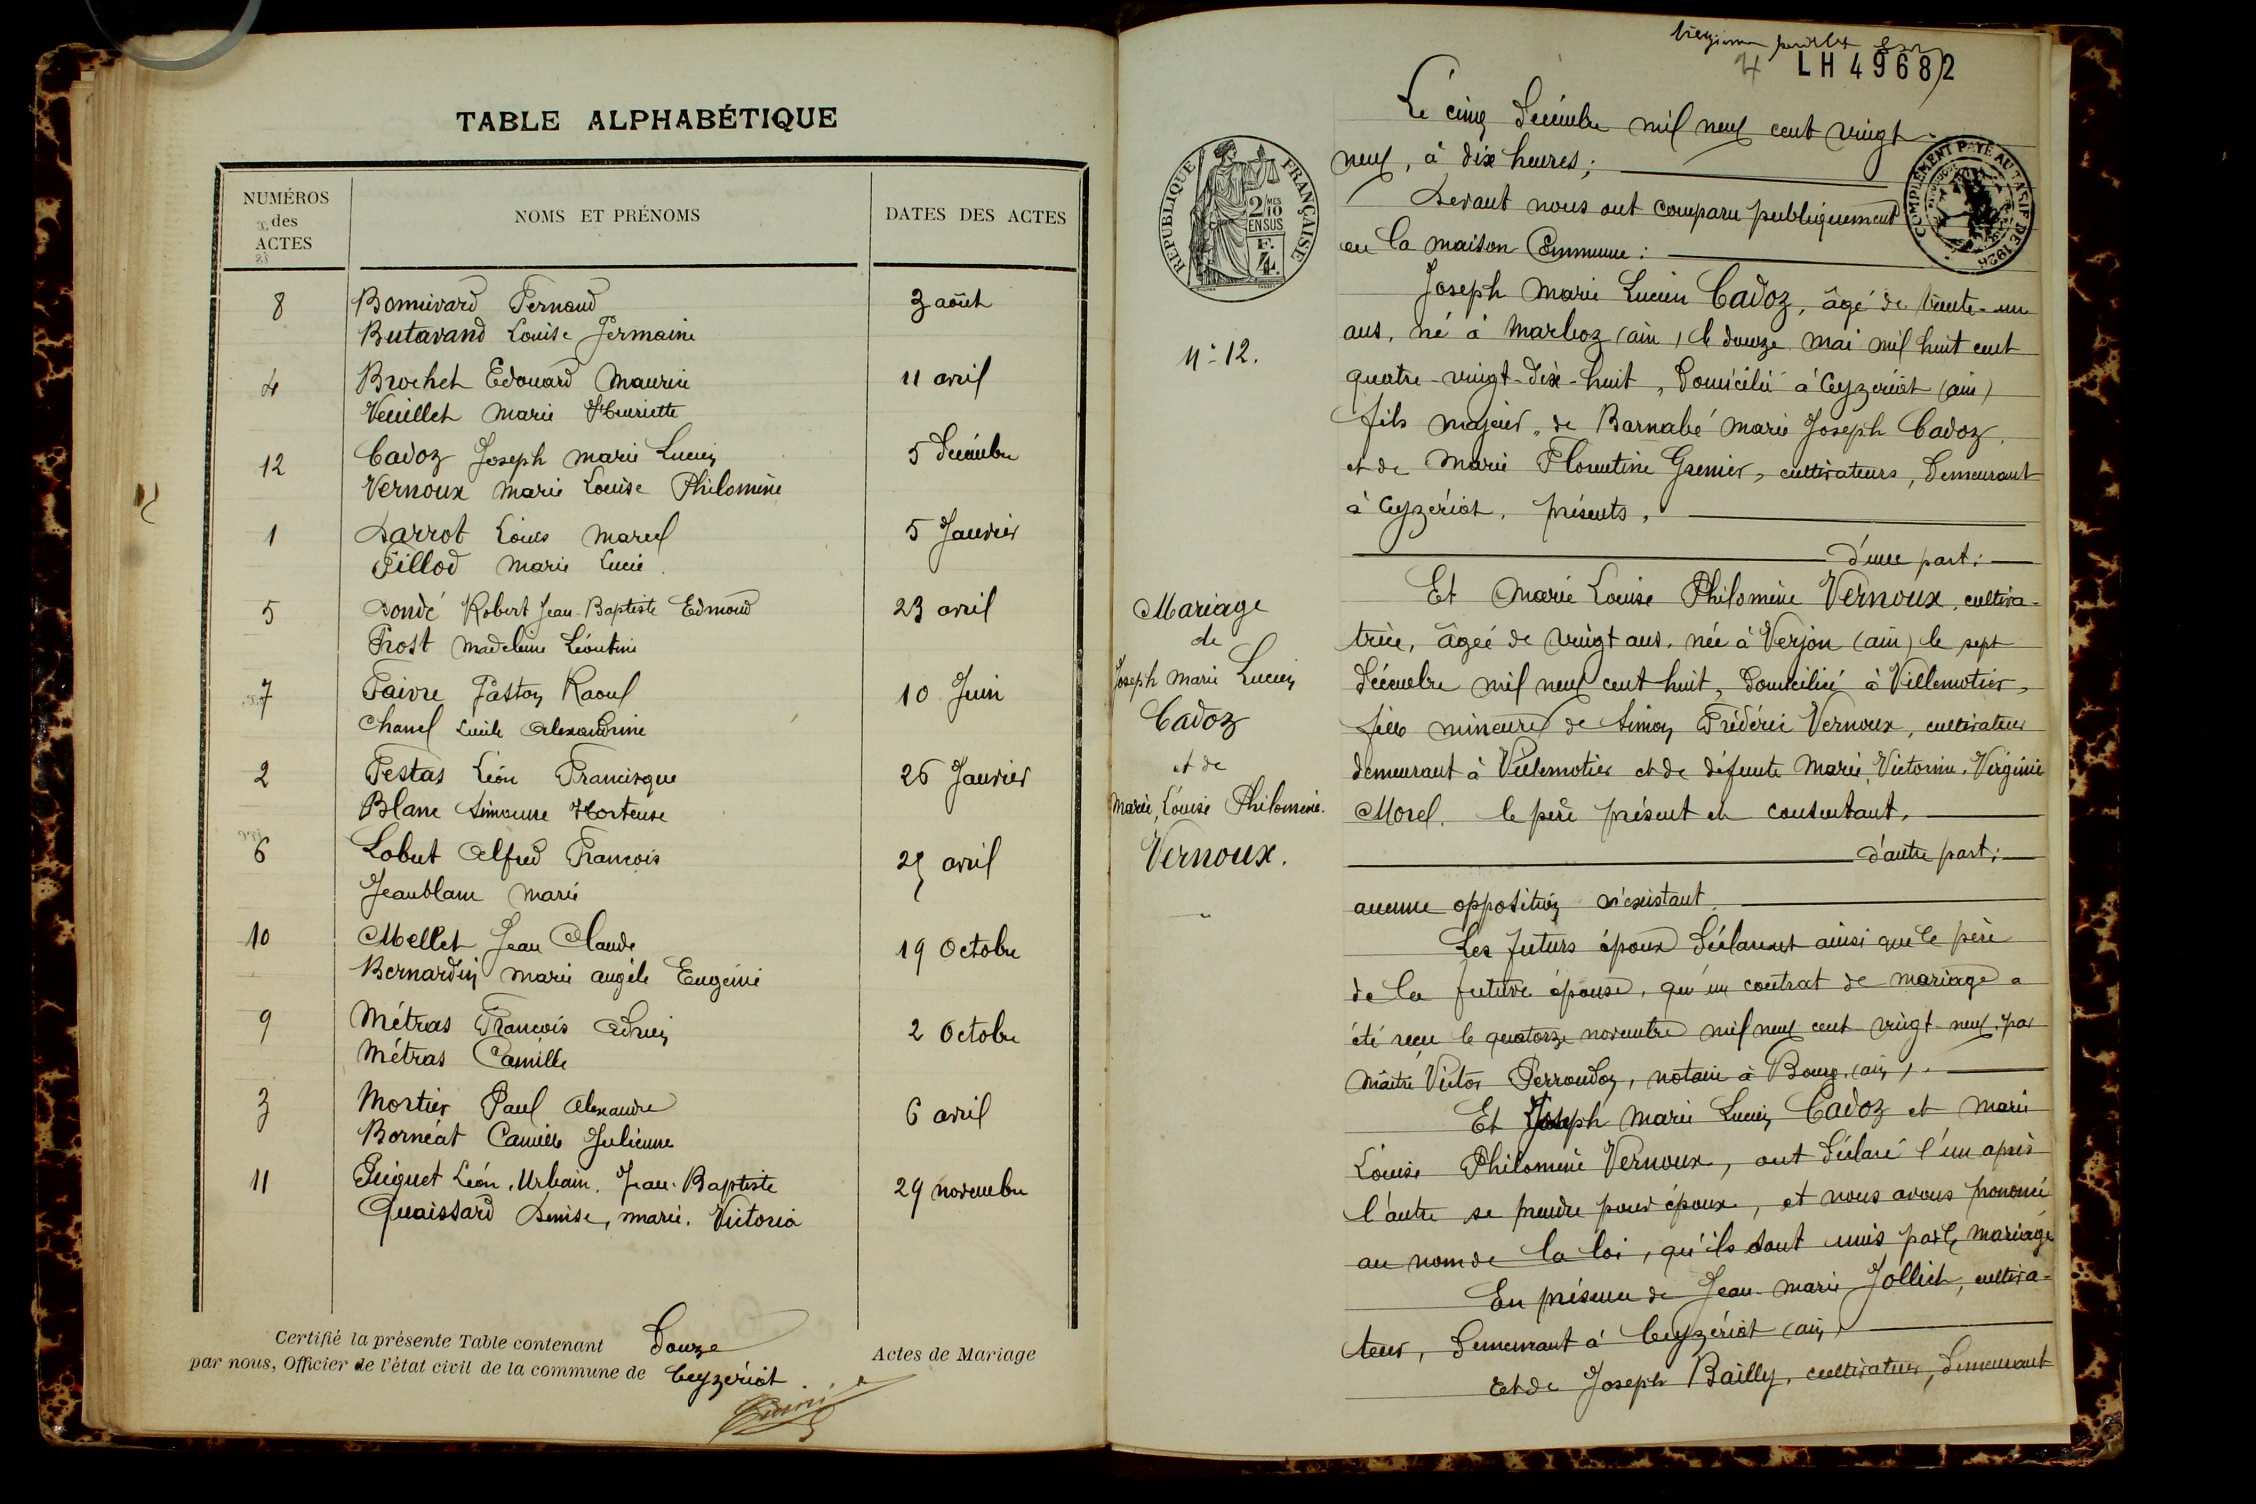 TABLE ALPHABÉTIQUE
NUMÉROS des ACTES
NOMS ET PRÉNOMS
DATES DES ACTES
8 Bonnivard Fernand 3 août
Butavand Louise Germaine
4 Brochet Edouard Maurice 11 avril
Veuillet Marie Henriette
12 Cadoz Joseph Marie Lucien 5 Décembre
Vernoux Marie Louise Philomène
1 Darrot Louis Marcel 5 Janvier
Pillod Marie Lucie
5 Dondé Robert Jean-Baptiste Edmond 23 avril
Prost Madeleine Léontine
7 Faivre Gaston Raoul 10 Juin
Chanel Lucile Alexandrine
2 Festas Léon Francisque 26 Janvier
Blanc Simonne Hortense
6 Lobut Alfred François 25 avril
Jeanblanc Marie
10 Mellet Jean Claude 19 Octobre
Bernardin Marie Angèle Eugénie
9 Métras François 2 Octobre
Métras Camille
3 Mortier Paul Alexandre 6 avril
Bornéat Camille Julienne
11 Léon, Urbain, Jean-Baptiste 29 novembre
Quaissard Denise, Marie, Victoria
Certifié la présente Table contenant Douze Actes de Mariage
par nous, Officier de l'état civil de la commune de Ceyzériat
4 LH 49682
RÉPUBLIQUE FRANÇAISE
2/10 MES
EN SUS
F. 4.
COMPLÉMENT PAYÉ AU TARIF DE 1926
N° 12.
Mariage
de
Joseph Marie Lucien
Cadoz
et de
Marie, Louise Philomène.
Vernoux.
Le cinq Décembre mil neuf cent vingt-
neuf, à dix heures;
Devant nous ont comparu publiquement
en la maison Commune:
Joseph Marie Lucien Cadoz, âgé de trente-un
ans, né à Marboz (ain) le douze mai mil huit cent
quatre-vingt-dix-huit, Domicilié à Ceyzériat (ain)
fils majeur, de Barnabé Marie Joseph Cadoz
et de Marie Florentine Grenier, cultivateurs, Demeurant
à Ceyzériat, présents,
d'une part;
Et Marie Louise Philomène Vernoux, cultiva-
trice, âgée de vingt ans, née à Verjon (ain) le sept
décembre mil neuf cent huit, domiciliée à Villemotier,
fille mineure de Simon Frédéric Vernoux, cultivateur
demeurant à Villemotier et de défunte Marie, Victorine, Virginie
Morel. le père présent et consentant,
d'autre part;
aucune opposition n'existant.
Les futurs époux déclarent ainsi que le père
de la future épouse, qu'un contrat de mariage a
été reçu le quatorze novembre mil neuf cent vingt-neuf, par
Maître Victor Perroudon, notaire à Bourg (ain).
Et Joseph Marie Lucien Cadoz et Marie
Louise Philomène Vernoux, ont déclaré l'un après
l'autre se prendre pour époux, et nous avons prononcé
au nom de la loi, qu'ils sont unis par le mariage
En présence de Jean-Marie Jolliet, cultiva-
teur, Demeurant à Ceyzériat (ain)
Et de Joseph Bailly, cultivateur, Demeurant